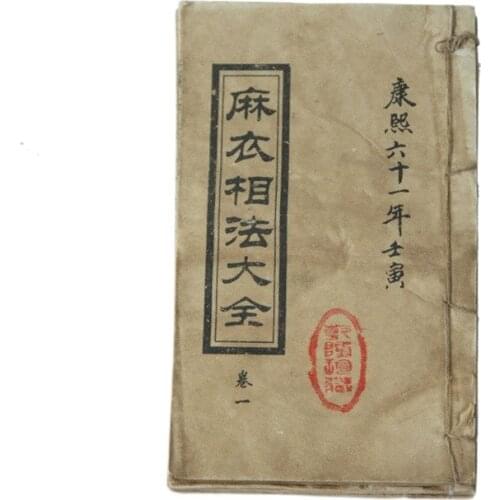 康熙六十一年壬寅
麻衣相法大全
卷一